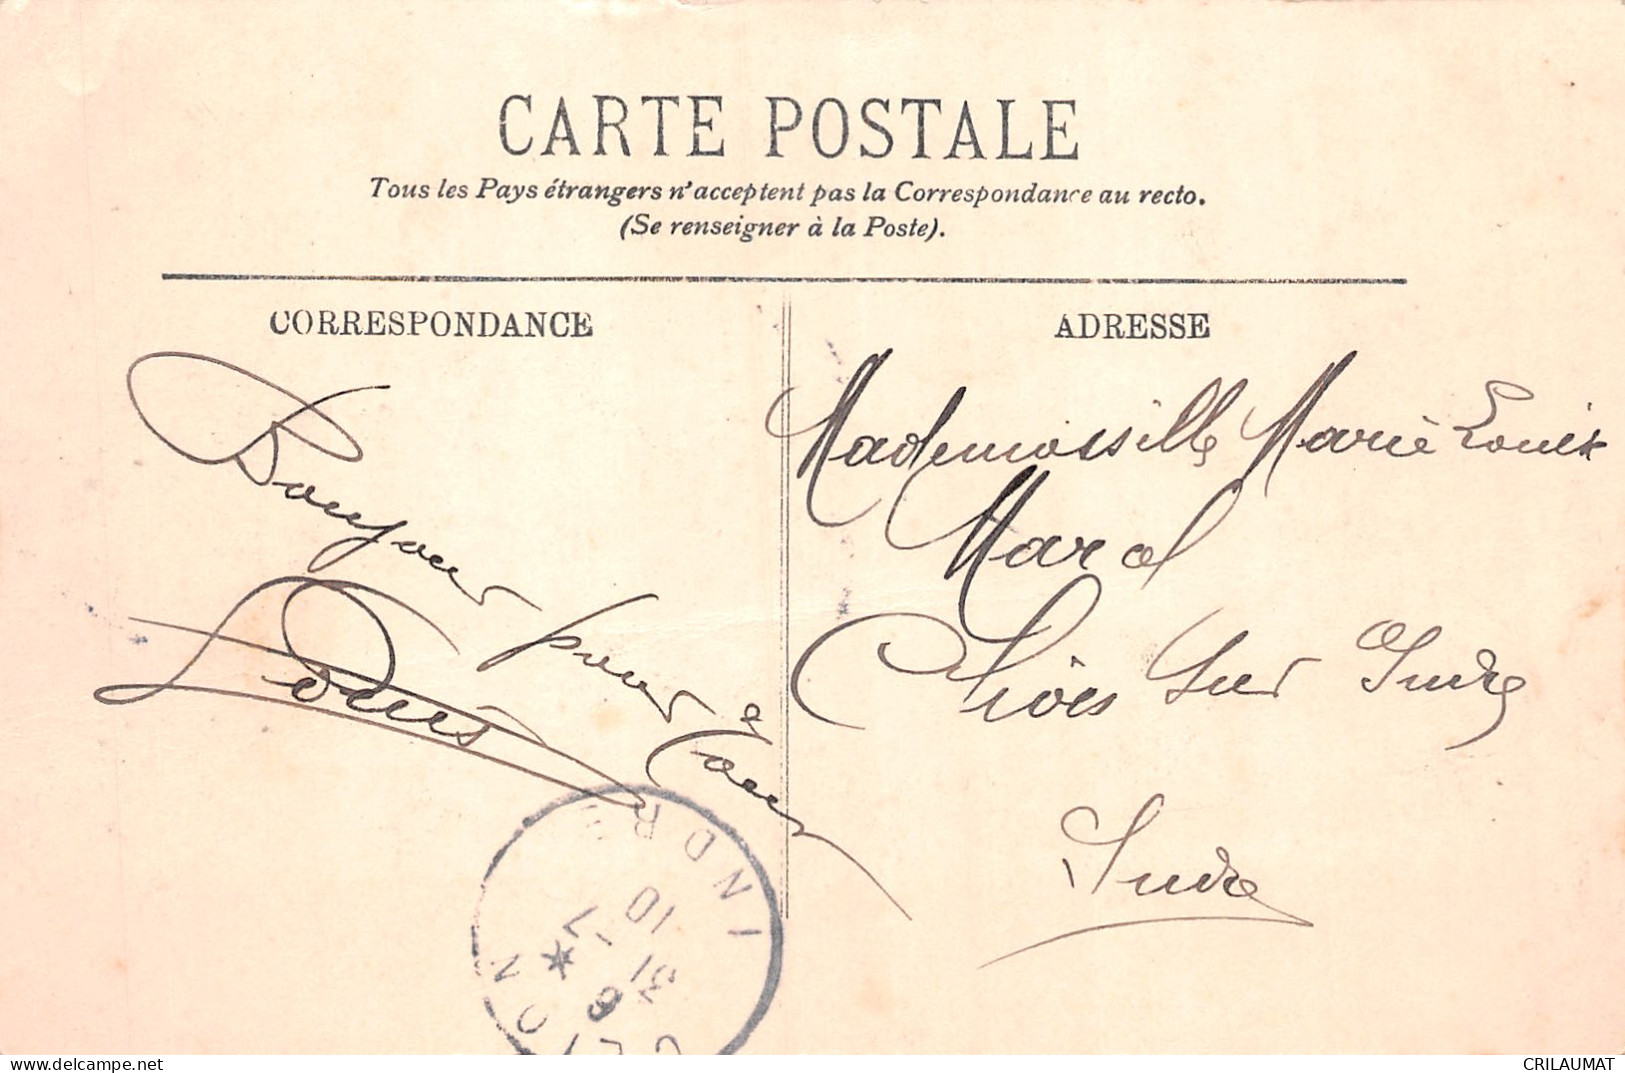 CARTE POSTALE
Tous les Pays étrangers n'acceptent pas la Correspondance au recto.
(Se renseigner à la Poste).
CORRESPONDANCE
Bonjour pour
Louis
ADRESSE
Mademoiselle Marie Louise
Marol
Clion Sur Indre
Indre
INDRE
10
31
8
CLION
delcampe.net
CRILAUMAT